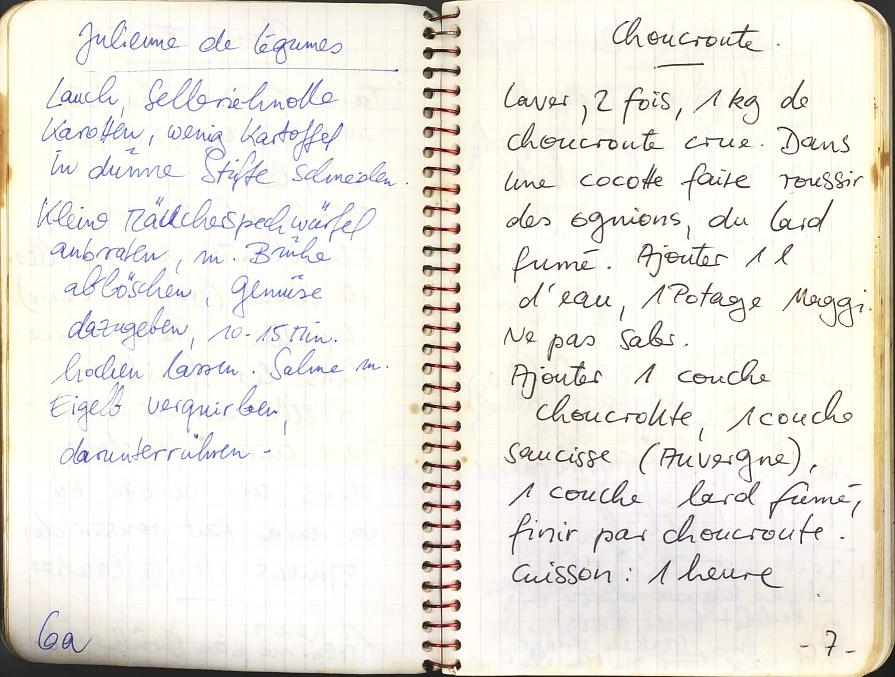 Julienne de légumes
Lauch, Sellerieknolle
Karotten, wenig Kartoffel
In dünne Stifte schneiden.
Kleine Räucherspeckwürfel
anbraten, m. Brühe
ablöschen, Gemüse
dazugeben, 10-15 Min.
kochen lassen. Sahne m.
Eigelb verquirlen,
darunterrühren -
6a
Choucroute.
Laver, 2 fois, 1 kg de
choucroute crue. Dans
une cocotte faire roussir
des ognions, du lard
fumé. Ajouter 1 l
d'eau, 1 Potage Maggi.
Ne pas saler.
Ajouter 1 couche
choucroute, 1 couche
saucisse (Auvergne),
1 couche lard fumé,
finir par choucroute.
Cuisson : 1 heure
- 7 -